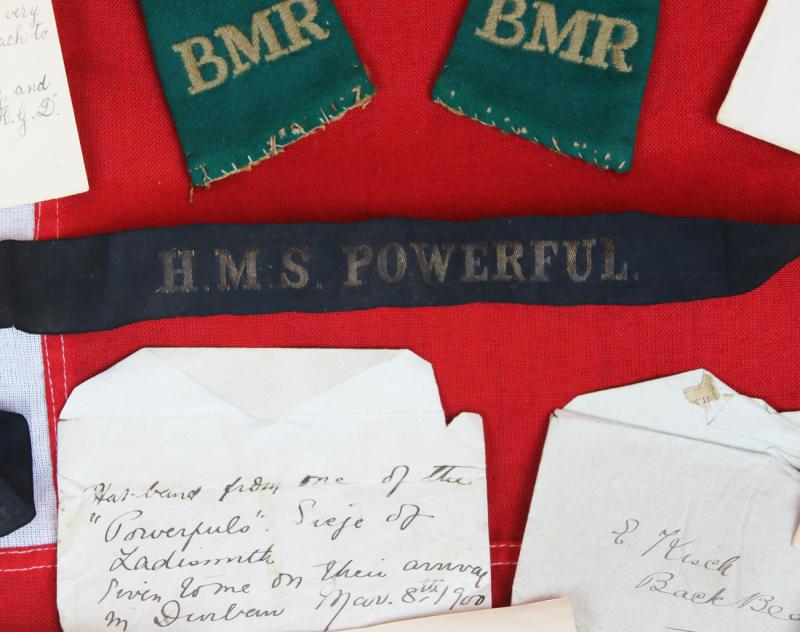 very
ach to
and
H.G.D."
BMR
BMR
H.M.S. POWERFUL.
Hat-band from one of the
"Powerfuls". Siege of
Ladismith
Given to me on their arrival
in Durban Mar. 8th 1900
E. Kisch
Back Bea